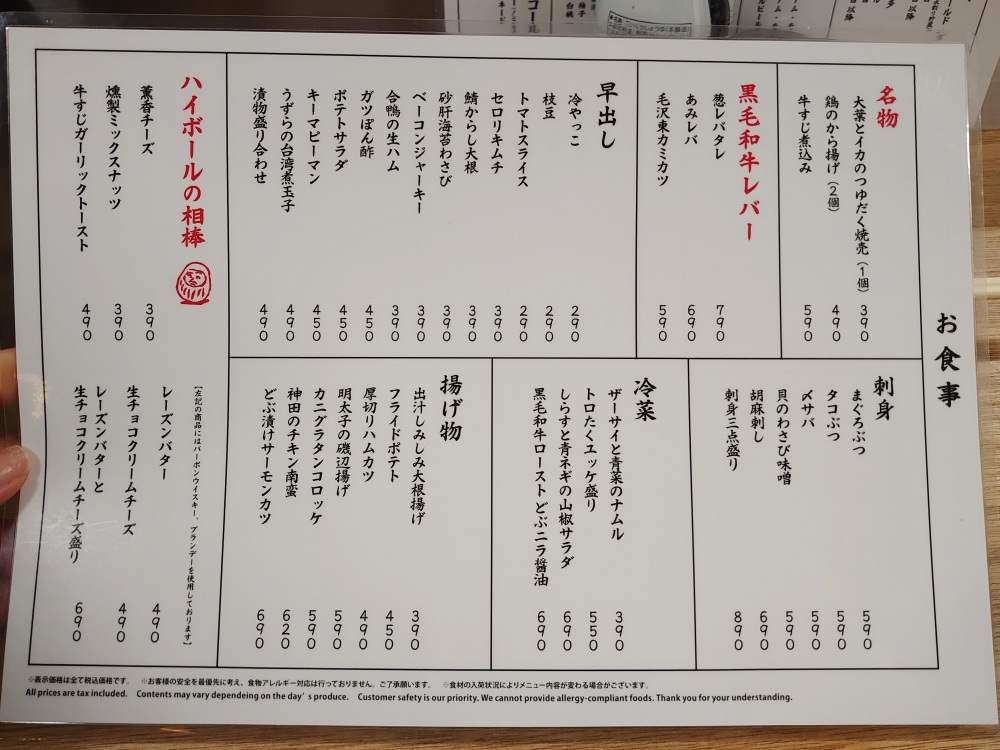 お食事
名物
大葉とイカのつゆだく焼売（1個） 390
鶏のから揚げ（2個） 490
牛すじ煮込み 590
黒毛和牛レバー
葱レバタレ 790
あみレバ 690
毛沢東カミカツ 590
早出し
冷やっこ 290
枝豆 290
トマトスライス 290
セロリキムチ 390
鯖からし大根 390
砂肝海苔わさび 390
ベーコンジャーキー 390
合鴨の生ハム 390
ガツぽん酢 450
ポテトサラダ 450
キーマピーマン 450
うずらの台湾煮玉子 490
漬物盛り合わせ 490
ハイボールの相棒
薫香チーズ 390
燻製ミックスナッツ 390
牛すじガーリックトースト 490
【左記の商品にはバーボンウイスキー、ブランデーを使用しております】
レーズンバター 490
生チョコクリームチーズ 490
レーズンバターと
生チョコクリームチーズ盛り 690
刺身
まぐろぶつ 590
タコぶつ 590
〆サバ 590
貝のわさび味噌 590
胡麻刺し 690
刺身三点盛り 890
冷菜
ザーサイと青菜のナムル 390
トロたくユッケ盛り 550
しらすと青ネギの山椒サラダ 690
黒毛和牛ロースト どぶニラ醤油 690
揚げ物
出汁しみしみ大根揚げ 390
フライドポテト 450
厚切りハムカツ 490
明太子の磯辺揚げ 590
カニグラタンコロッケ 590
神田のチキン南蛮 620
どぶ漬けサーモンカツ 690
※表示価格は全て税込価格です。 ※お客様の安全を最優先に考え、食物アレルギー対応は行っておりません。ご了承願います。 ※食材の入荷状況によりメニュー内容が変わる場合がございます。
All prices are tax included. Contents may vary dependeing on the day's produce. Customer safety is our priority. We cannot provide allergy-compliant foods. Thank you for your understanding.